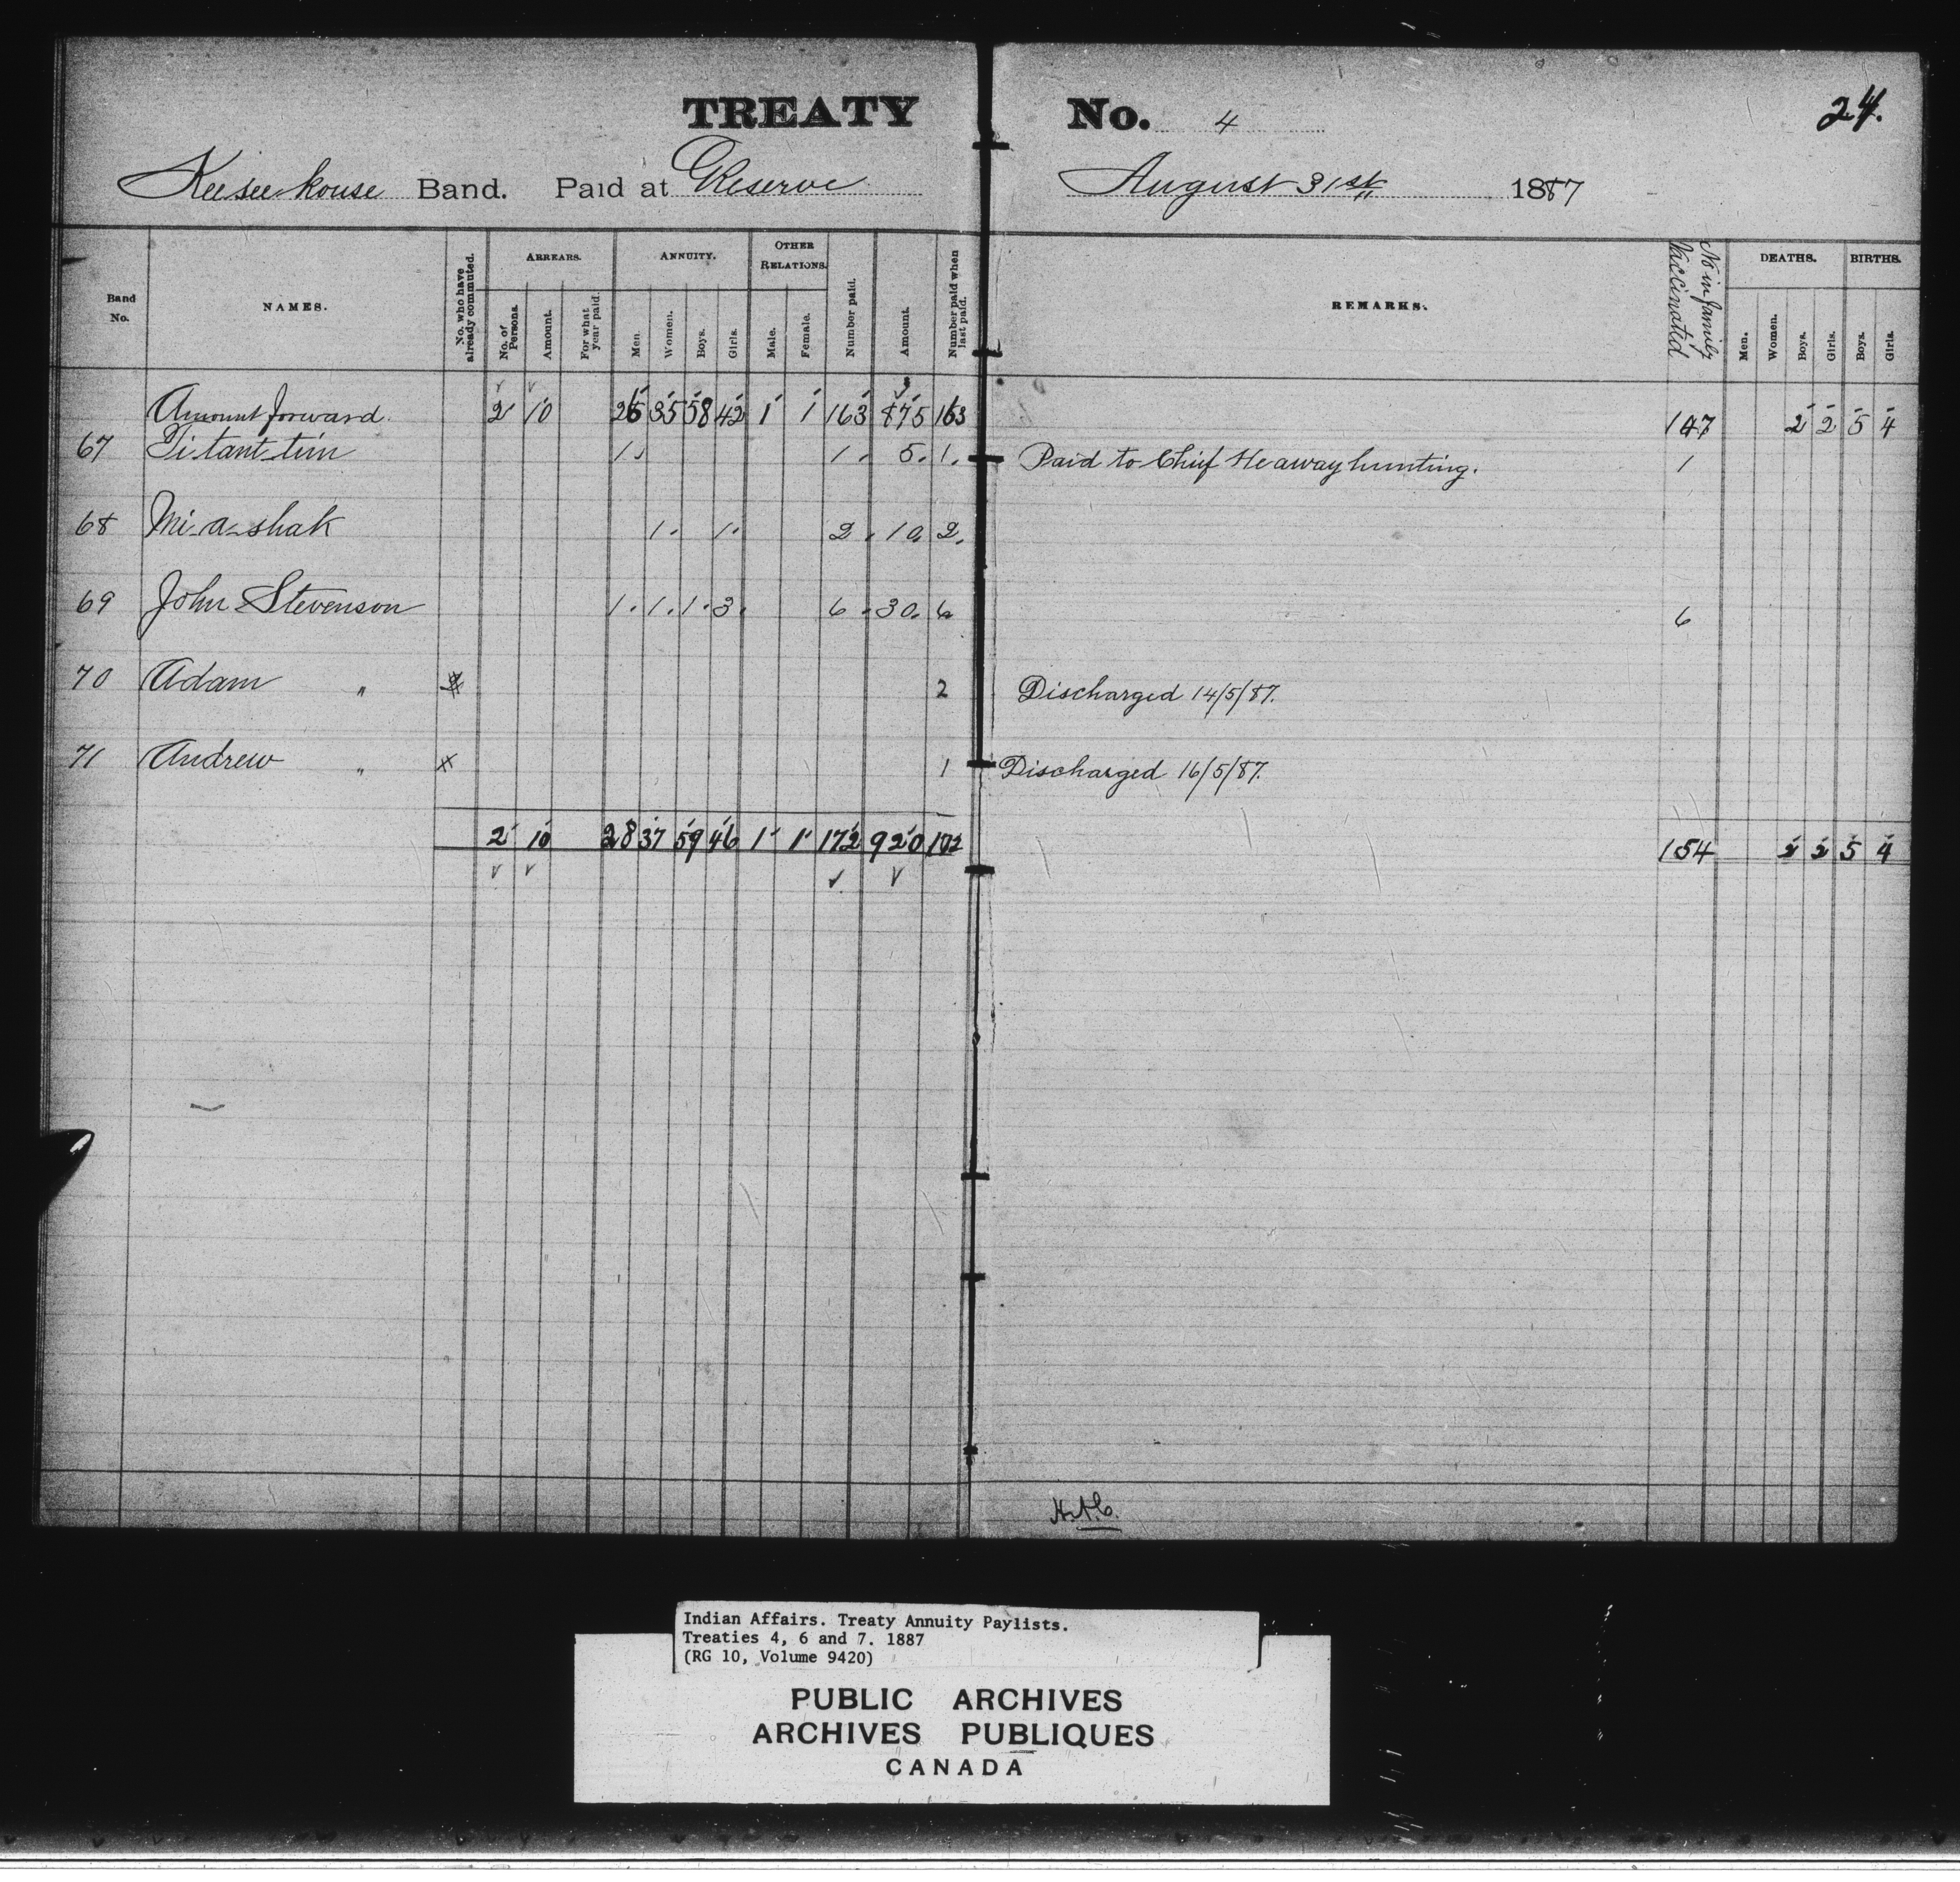 TREATY No. 4
24.
Keesee kouse Band. Paid at Reserve August 31st 1887
Band No.
NAMES.
No. who have already commuted.
ARREARS.
No. of Persons.
Amount.
For what year paid.
ANNUITY.
Men.
Women.
Boys.
Girls.
OTHER RELATIONS.
Male.
Female.
Number paid.
Amount.
Number paid when last paid.
REMARKS.
No in family Vaccinated
DEATHS.
Men.
Women.
Boys.
Girls.
BIRTHS.
Boys.
Girls.
Amount forward. 2 10 26 35 58 42 1 1 163 875 163 147 2 2 5 4
67 Ti-tant-tim 1. 1. 5. 1. Paid to Chief He away hunting. 1
68 Mi-a-shak 1. 1. 2. 10. 2.
69 John Stevenson 1. 1. 1. 3. 6. 30. 6 6
70 Adam " 2 Discharged 14/5/87.
71 Andrew " x 1 Discharged 16/5/87.
2 10 28 37 59 46 1 1 172 920 172 154 2 2 5 4
Indian Affairs. Treaty Annuity Paylists.
Treaties 4, 6 and 7. 1887
(RG 10, Volume 9420)
PUBLIC ARCHIVES
ARCHIVES PUBLIQUES
CANADA